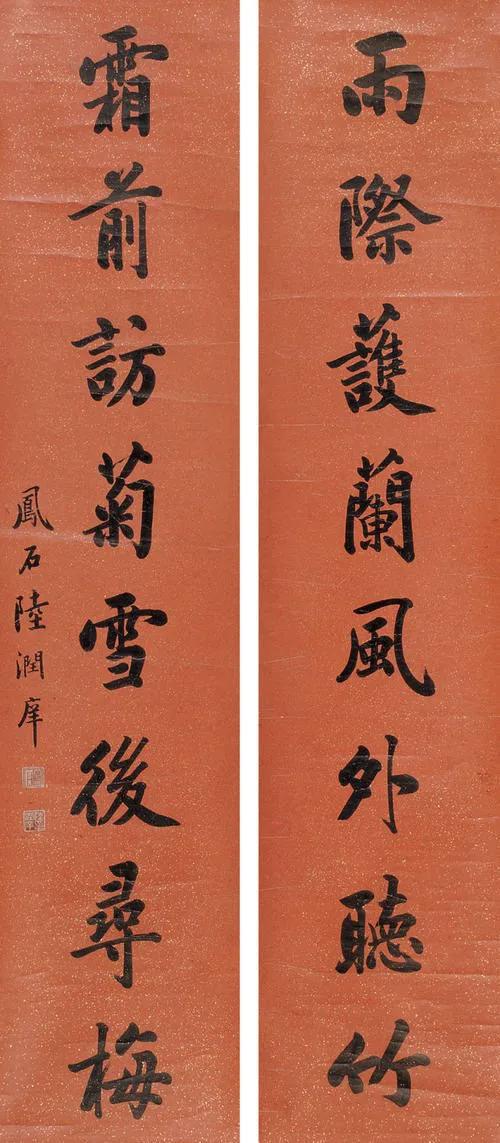 雨際護蘭風外聽竹
霜前訪菊雪後尋梅
鳳石陸潤庠